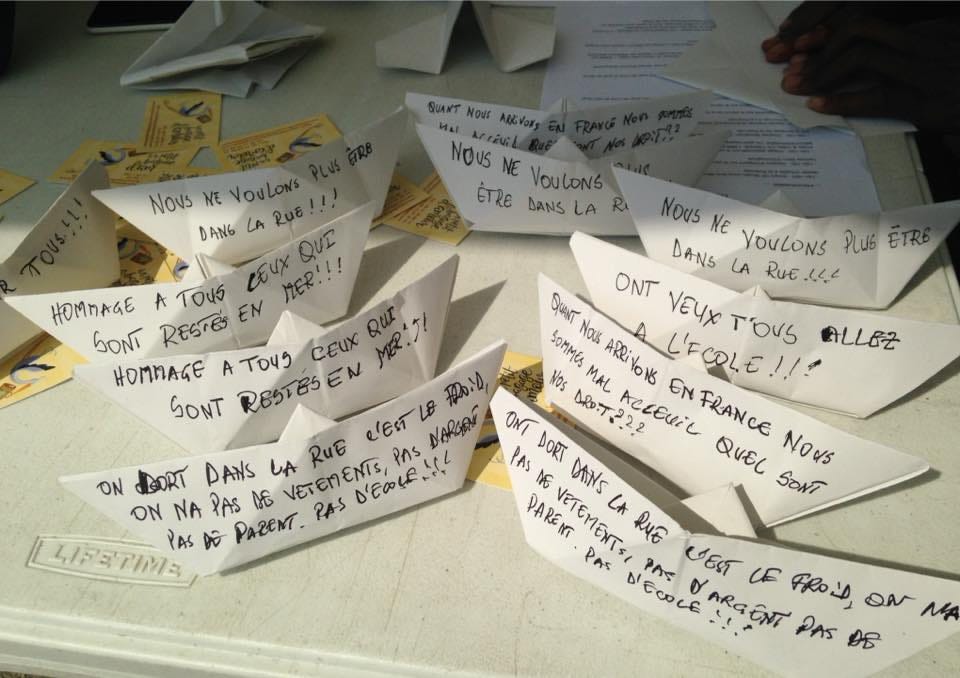 QUANT NOUS ARRIVONS EN FRANCE NOUS SOMMES
MAL ACCEUIL QUEL SONT NOS DROIT??
NOUS NE VOULONS PLUS
ÊTRE DANS LA RU
NOUS NE VOULONS PLUS ÊTRE
DANS LA RUE!!!
NOUS NE VOULONS PLUS ÊTRE
DANS LA RUE!!!
TOUS!!!
HOMMAGE A TOUS CEUX QUI
SONT RESTÉS EN MER!!!
ONT VEUX TOUS ALLEZ
A L'ECOLE!!!
HOMMAGE A TOUS CEUX QUI
SONT RESTÉS EN MER!!!
QUANT NOUS ARRIVONS EN FRANCE NOUS
SOMMES MAL ACCEUIL QUEL SONT
NOS DROIT???
ON DORT DANS LA RUE C'EST LE FROID,
ON NA PAS DE VETEMENTS, PAS D'ARGENT
PAS DE PARENT. PAS D'ECOLE!!!
ONT DORT DANS LA RUE C'EST LE FROID, ON NA
PAS DE VETEMENTS, PAS D'ARGENT PAS DE
PARENT. PAS D'ECOLE!!!
LIFETIME